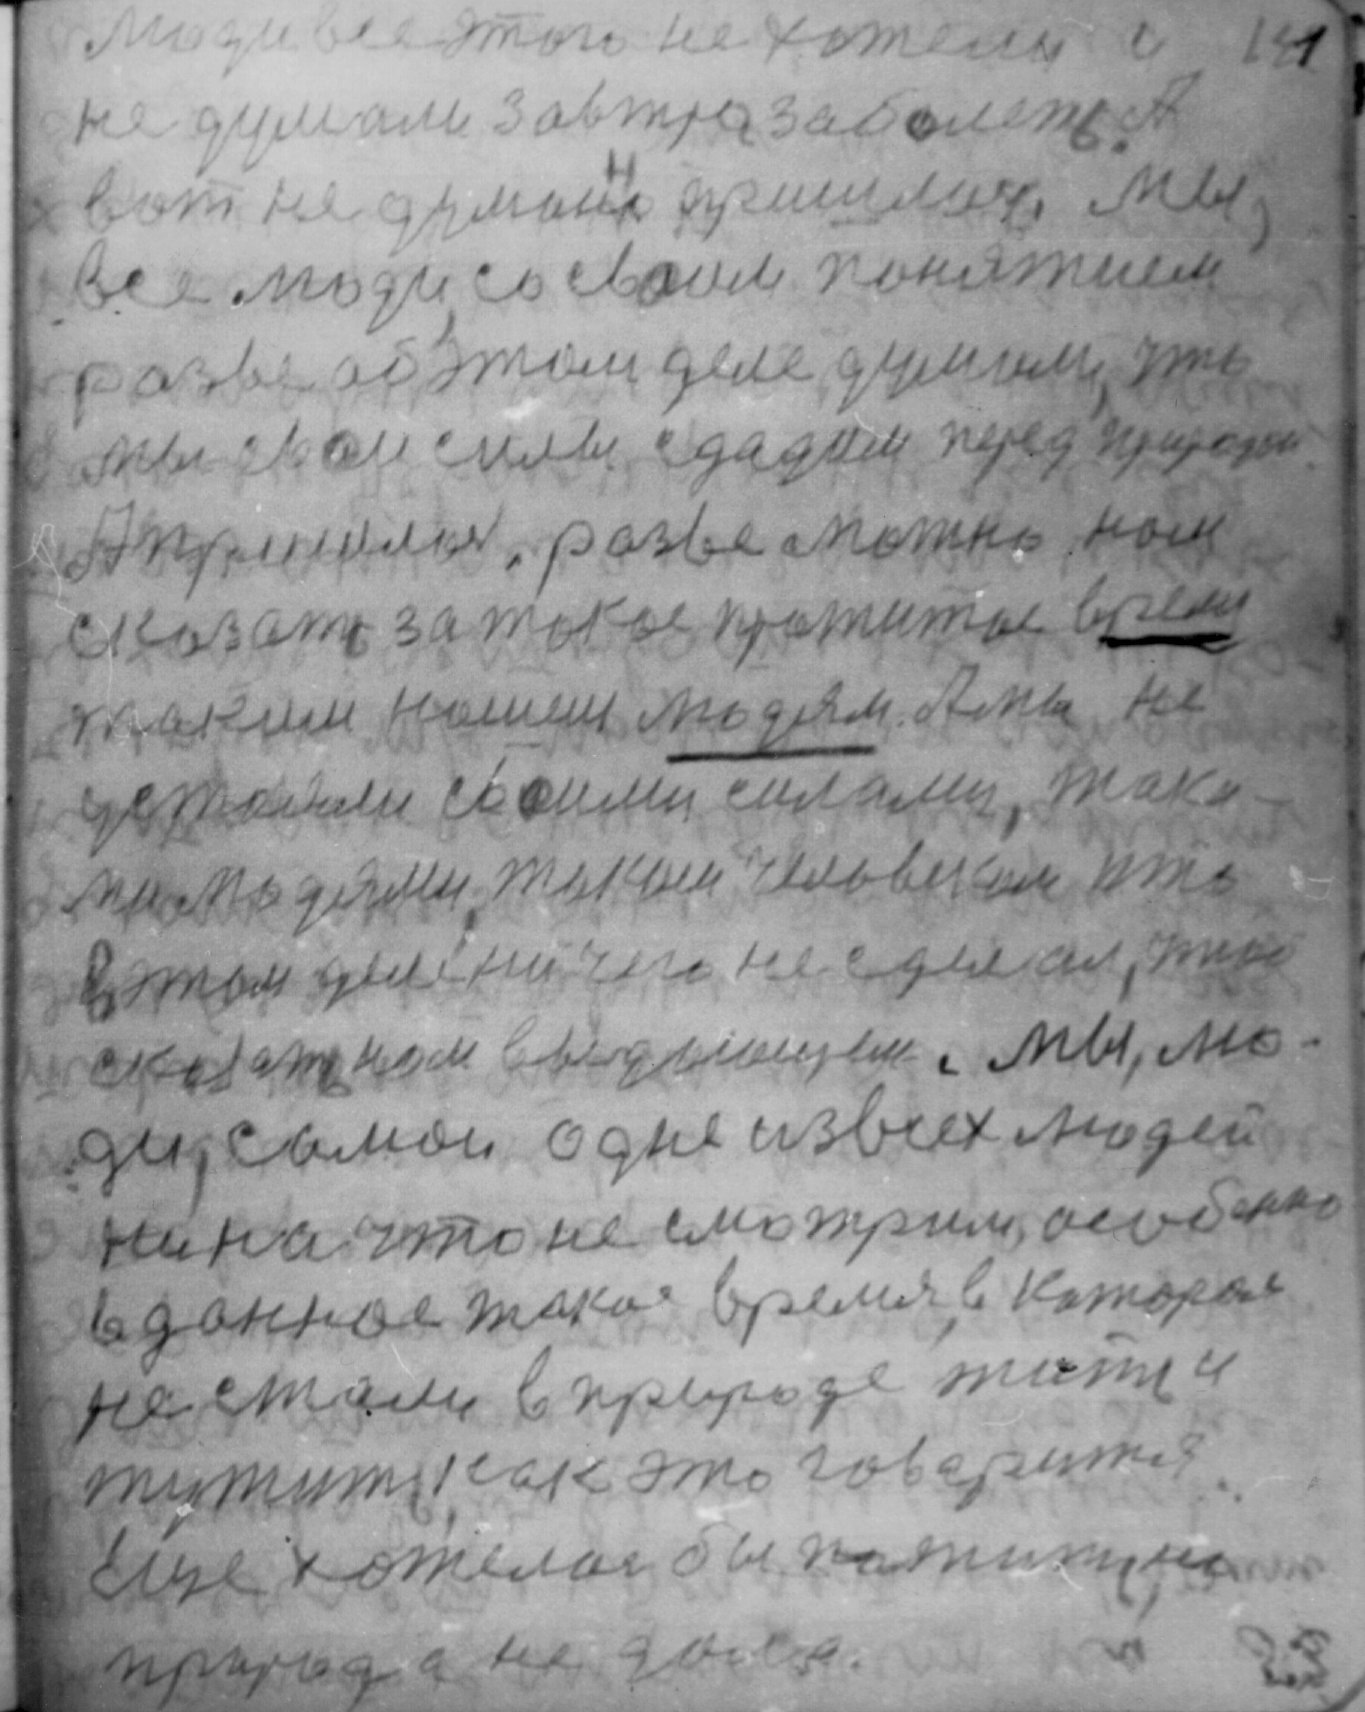 люди все этого не хотели и 141
не думали завтра заболеть. А
вот не думано пришлось. Мы,
все люди, со своим понятием
разве об этом деле думали, что
мы свои силы сдадим перед природой.
А пришлось, разве можно нам
сказать за такое прожитое время
таким нашим людям. А мы не
устояли своими силами, таки-
ми людями, таким человеком что
в этом деле ничего не сделал, что
сказать нам выдающем. Мы, лю-
ди, самои одне из всех людей
ни на что не смотрим, особенно
в данное такое время, в которое
не стали в природе жить и
тужить, как это говорится.
Еще хотелось бы пожить, но
природа не дала.